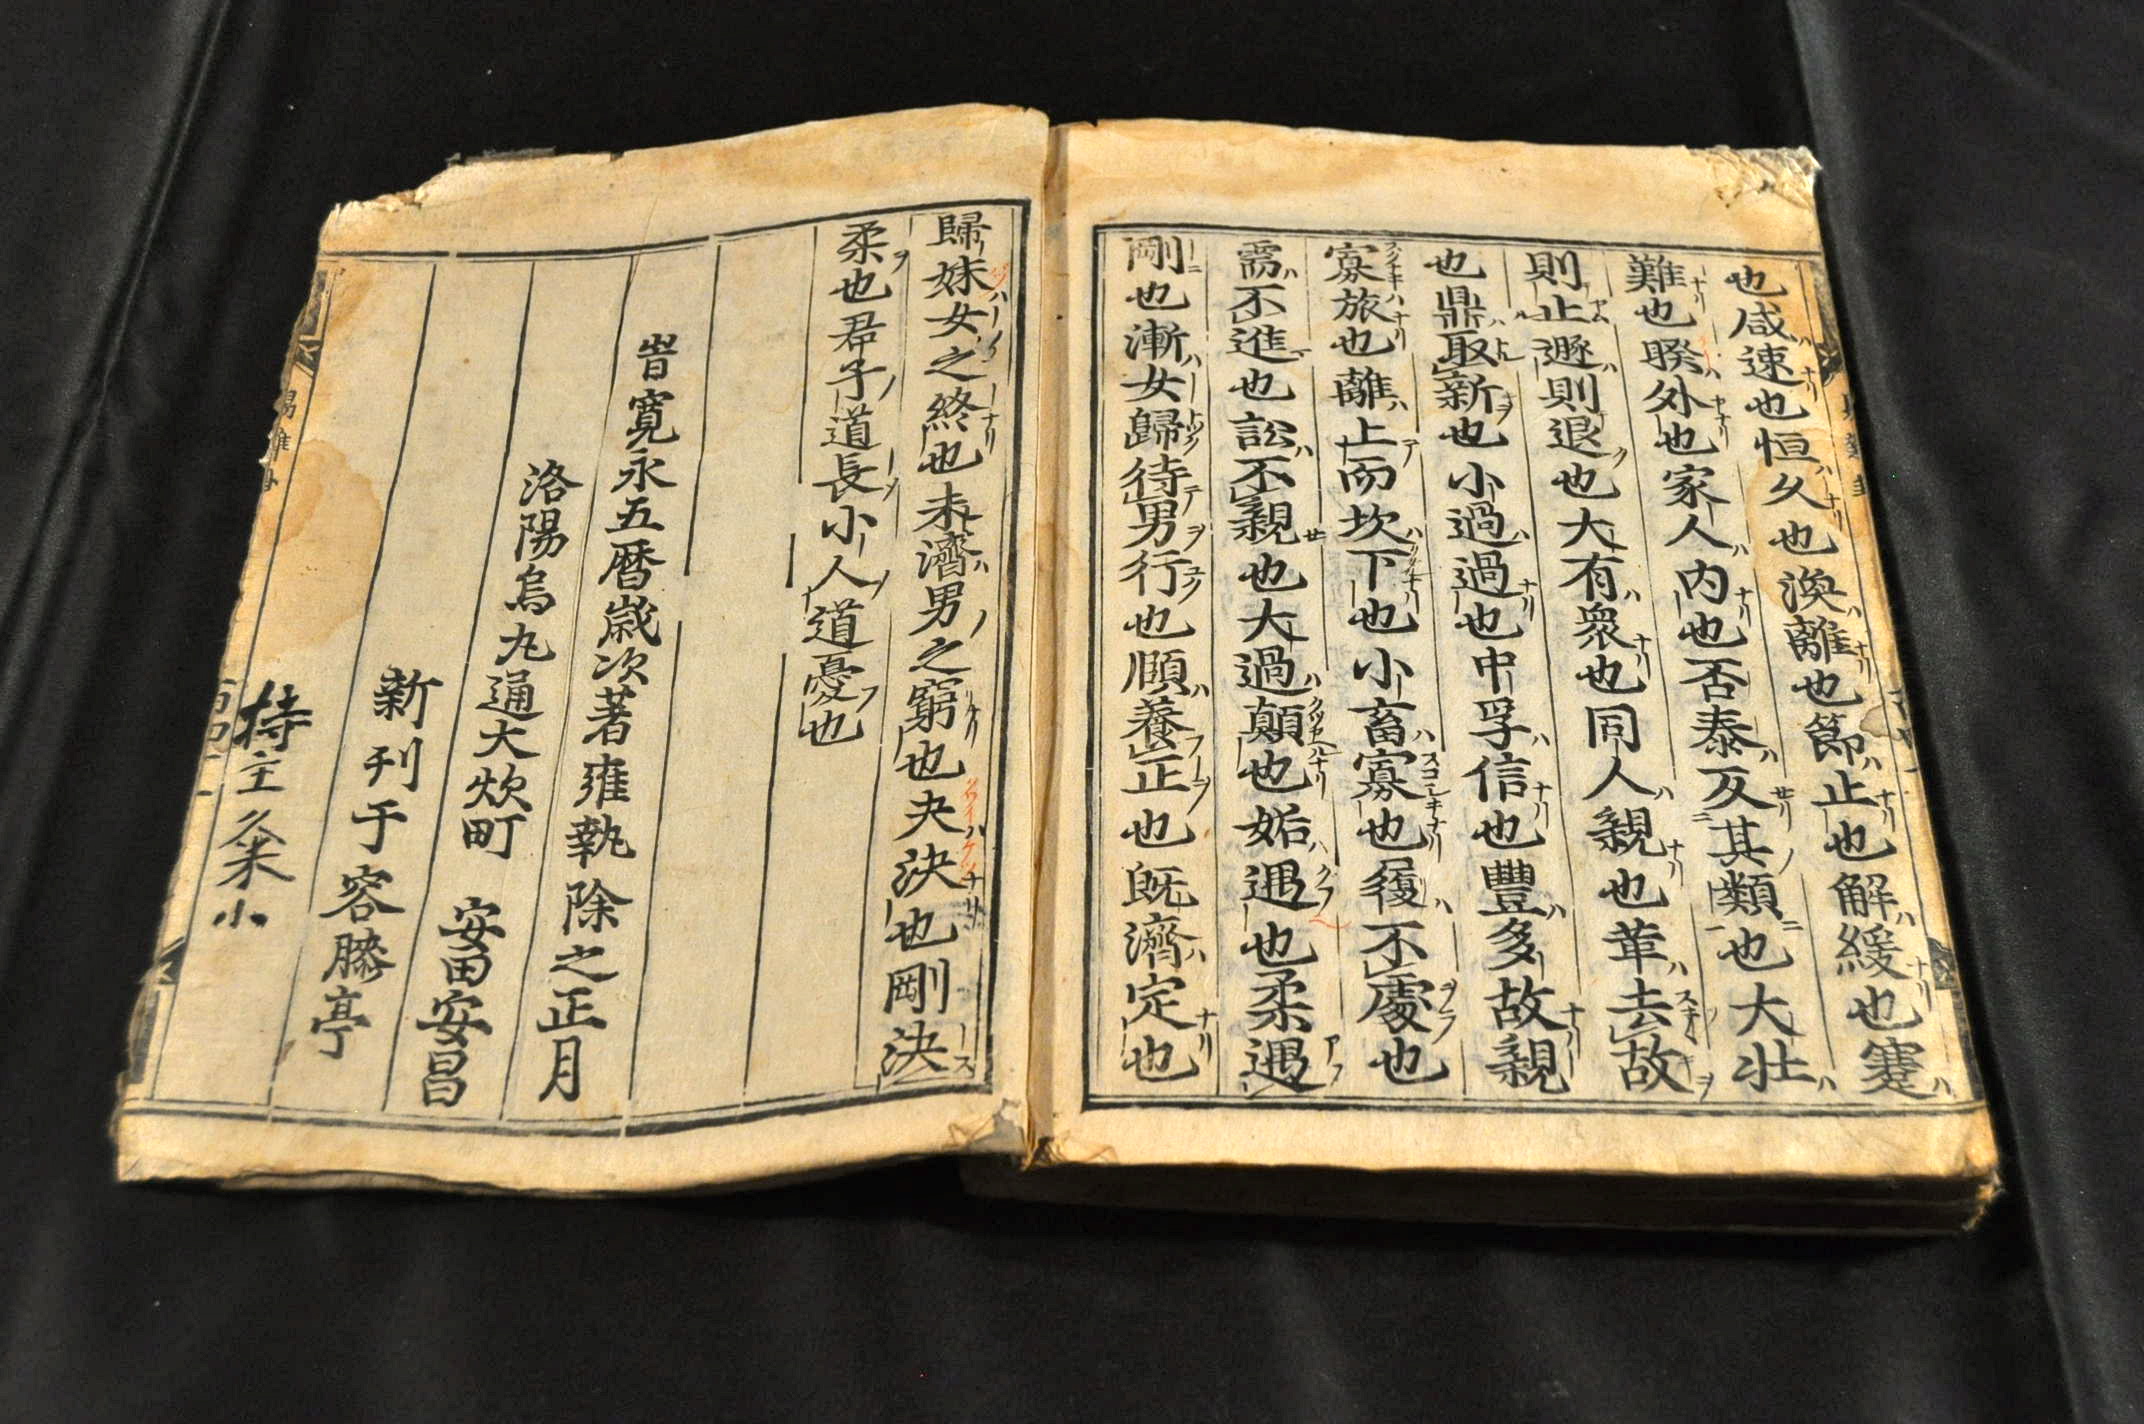 也咸速也恒久也渙離也節止也解緩也蹇
難也睽外也家人内也否泰反其類也大壮
則止遯則退也大有衆也同人親也革去故
也鼎取新也小過過也中孚信也豐多故親
寡旅也離上而坎下也小畜寡也履不處也
需不進也訟不親也大過顛也姤遇也柔遇
剛也漸女歸待男行也頤養正也既濟定也
歸妹女之終也未濟男之窮也夬決也剛決
柔也君子道長小人道憂也
旹寛永五暦歳次著雍執除之正月
洛陽烏丸通大炊町 安田安昌
新刊于容膝亭
持主